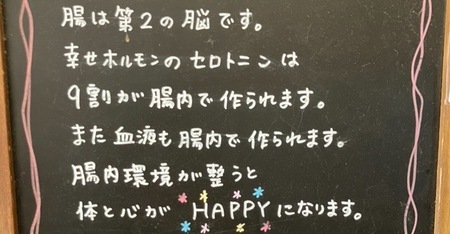 腸は第2の脳です。
幸せホルモンのセロトニンは
9割が腸内で作られます。
また血液も腸内で作られます。
腸内環境が整うと
体と心がHAPPYになります。